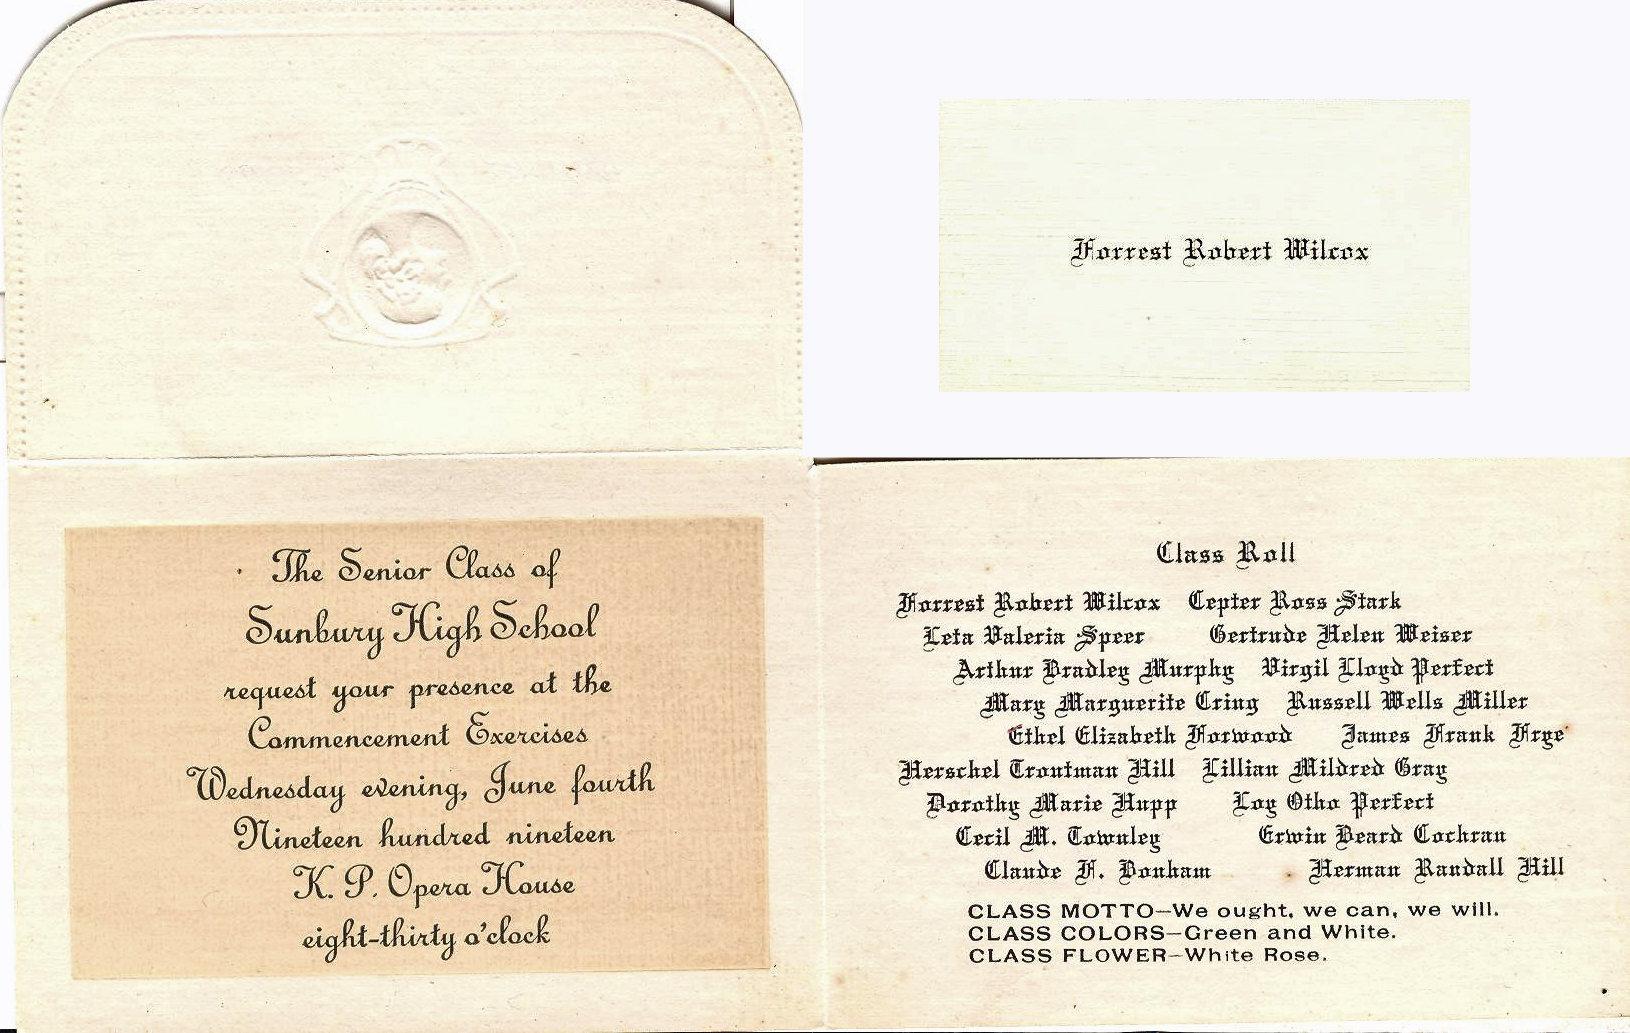 Forrest Robert Wilcox
The Senior Class of
Sunbury High School
request your presence at the
Commencement Exercises
Wednesday evening, June fourth
Nineteen hundred nineteen
K. P. Opera House
eight-thirty o'clock
Class Roll
Forrest Robert Wilcox Cepter Ross Stark
Leta Valeria Speer Gertrude Helen Weiser
Arthur Bradley Murphy Virgil Lloyd Perfect
Mary Marguerite Cring Russell Wells Miller
Ethel Elizabeth Forwood James Frank Frye
Herschel Troutman Hill Lillian Mildred Gray
Dorothy Marie Hupp Loy Otho Perfect
Cecil M. Townley Erwin Beard Cochran
Claude F. Bonham Herman Randall Hill
CLASS MOTTO—We ought, we can, we will.
CLASS COLORS—Green and White.
CLASS FLOWER—White Rose.